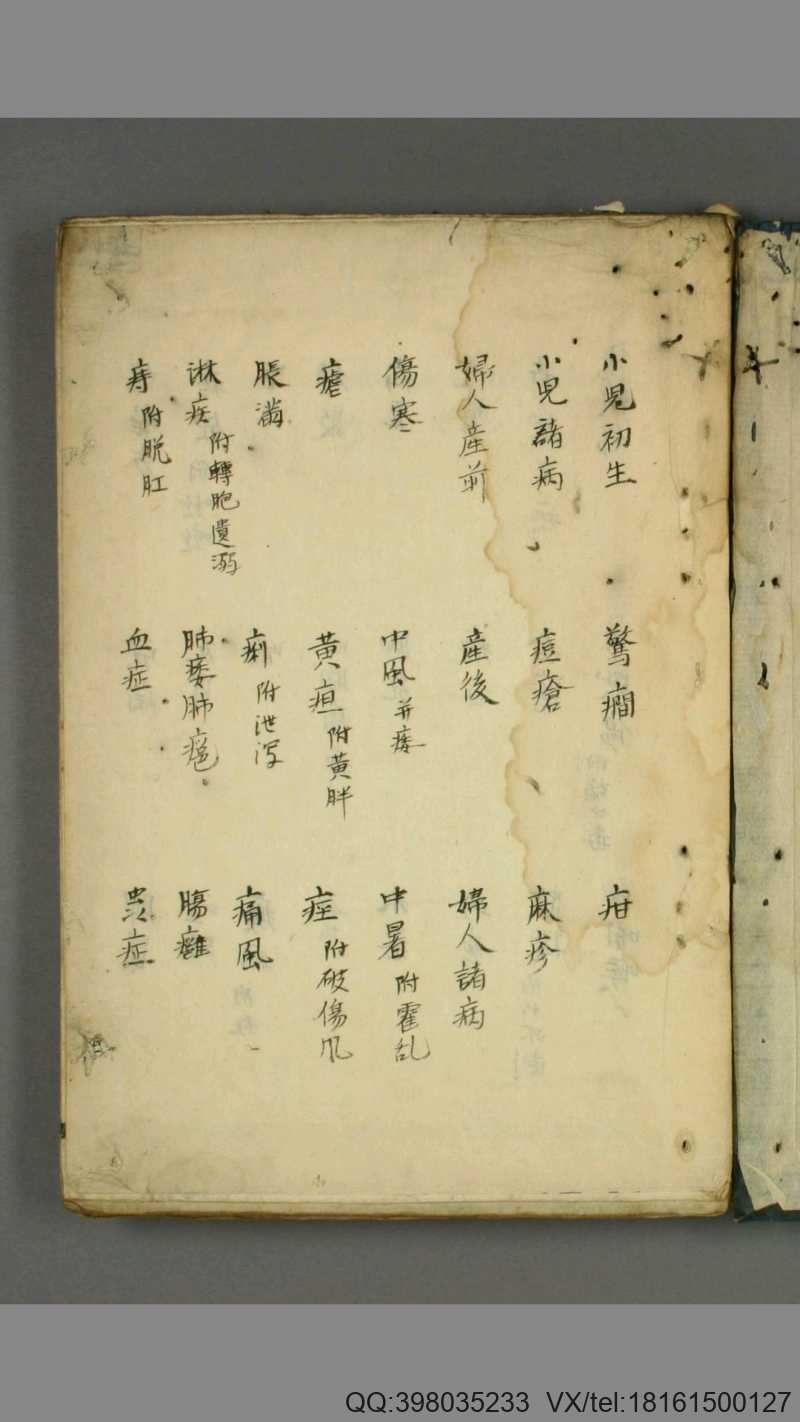 小児初生 驚癇 疳
小児諸病 痘瘡 麻疹
婦人産前 産後 婦人諸病
傷寒 中風 并痿 中暑 附霍乱
瘧 黄疸 附黄胖 痙 附破傷風
脹満 痢 附泄泻 痛風
淋疾 附轉胞遺溺 肺痿肺癰 腸癰
痔 附脱肛 血症 虫症
QQ:398035233 VX/tel:18161500127